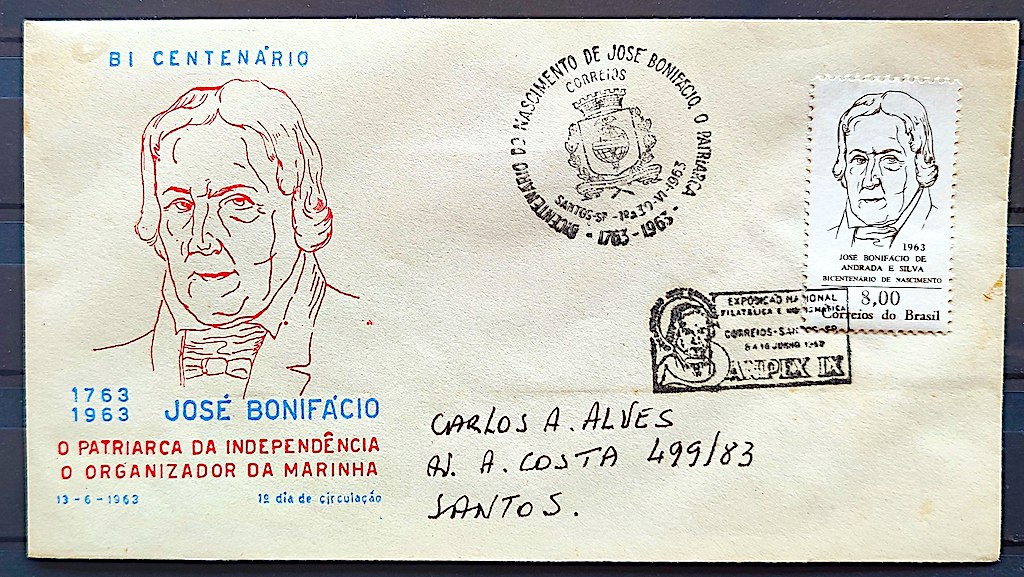 BI CENTENÁRIO
1763
1963 JOSÉ BONIFÁCIO
O PATRIARCA DA INDEPENDÊNCIA
O ORGANIZADOR DA MARINHA
13-6-1963 1º dia de circulação
BICENTENÁRIO DO NASCIMENTO DE JOSÉ BONIFÁCIO, O PATRIARCA
CORREIOS
SANTOS-SP - 1963
1763-1963
1963
JOSÉ BONIFÁCIO DE
ANDRADA E SILVA
BICENTENÁRIO DE NASCIMENTO
8,00
Correios do Brasil
EXPOSIÇÃO NACIONAL
FILATÉLICA E NUMISMÁTICA
CORREIOS-SANTOS-SP
SANPEX IX
CARLOS A. ALVES
AV. A. COSTA 499/83
SANTOS.